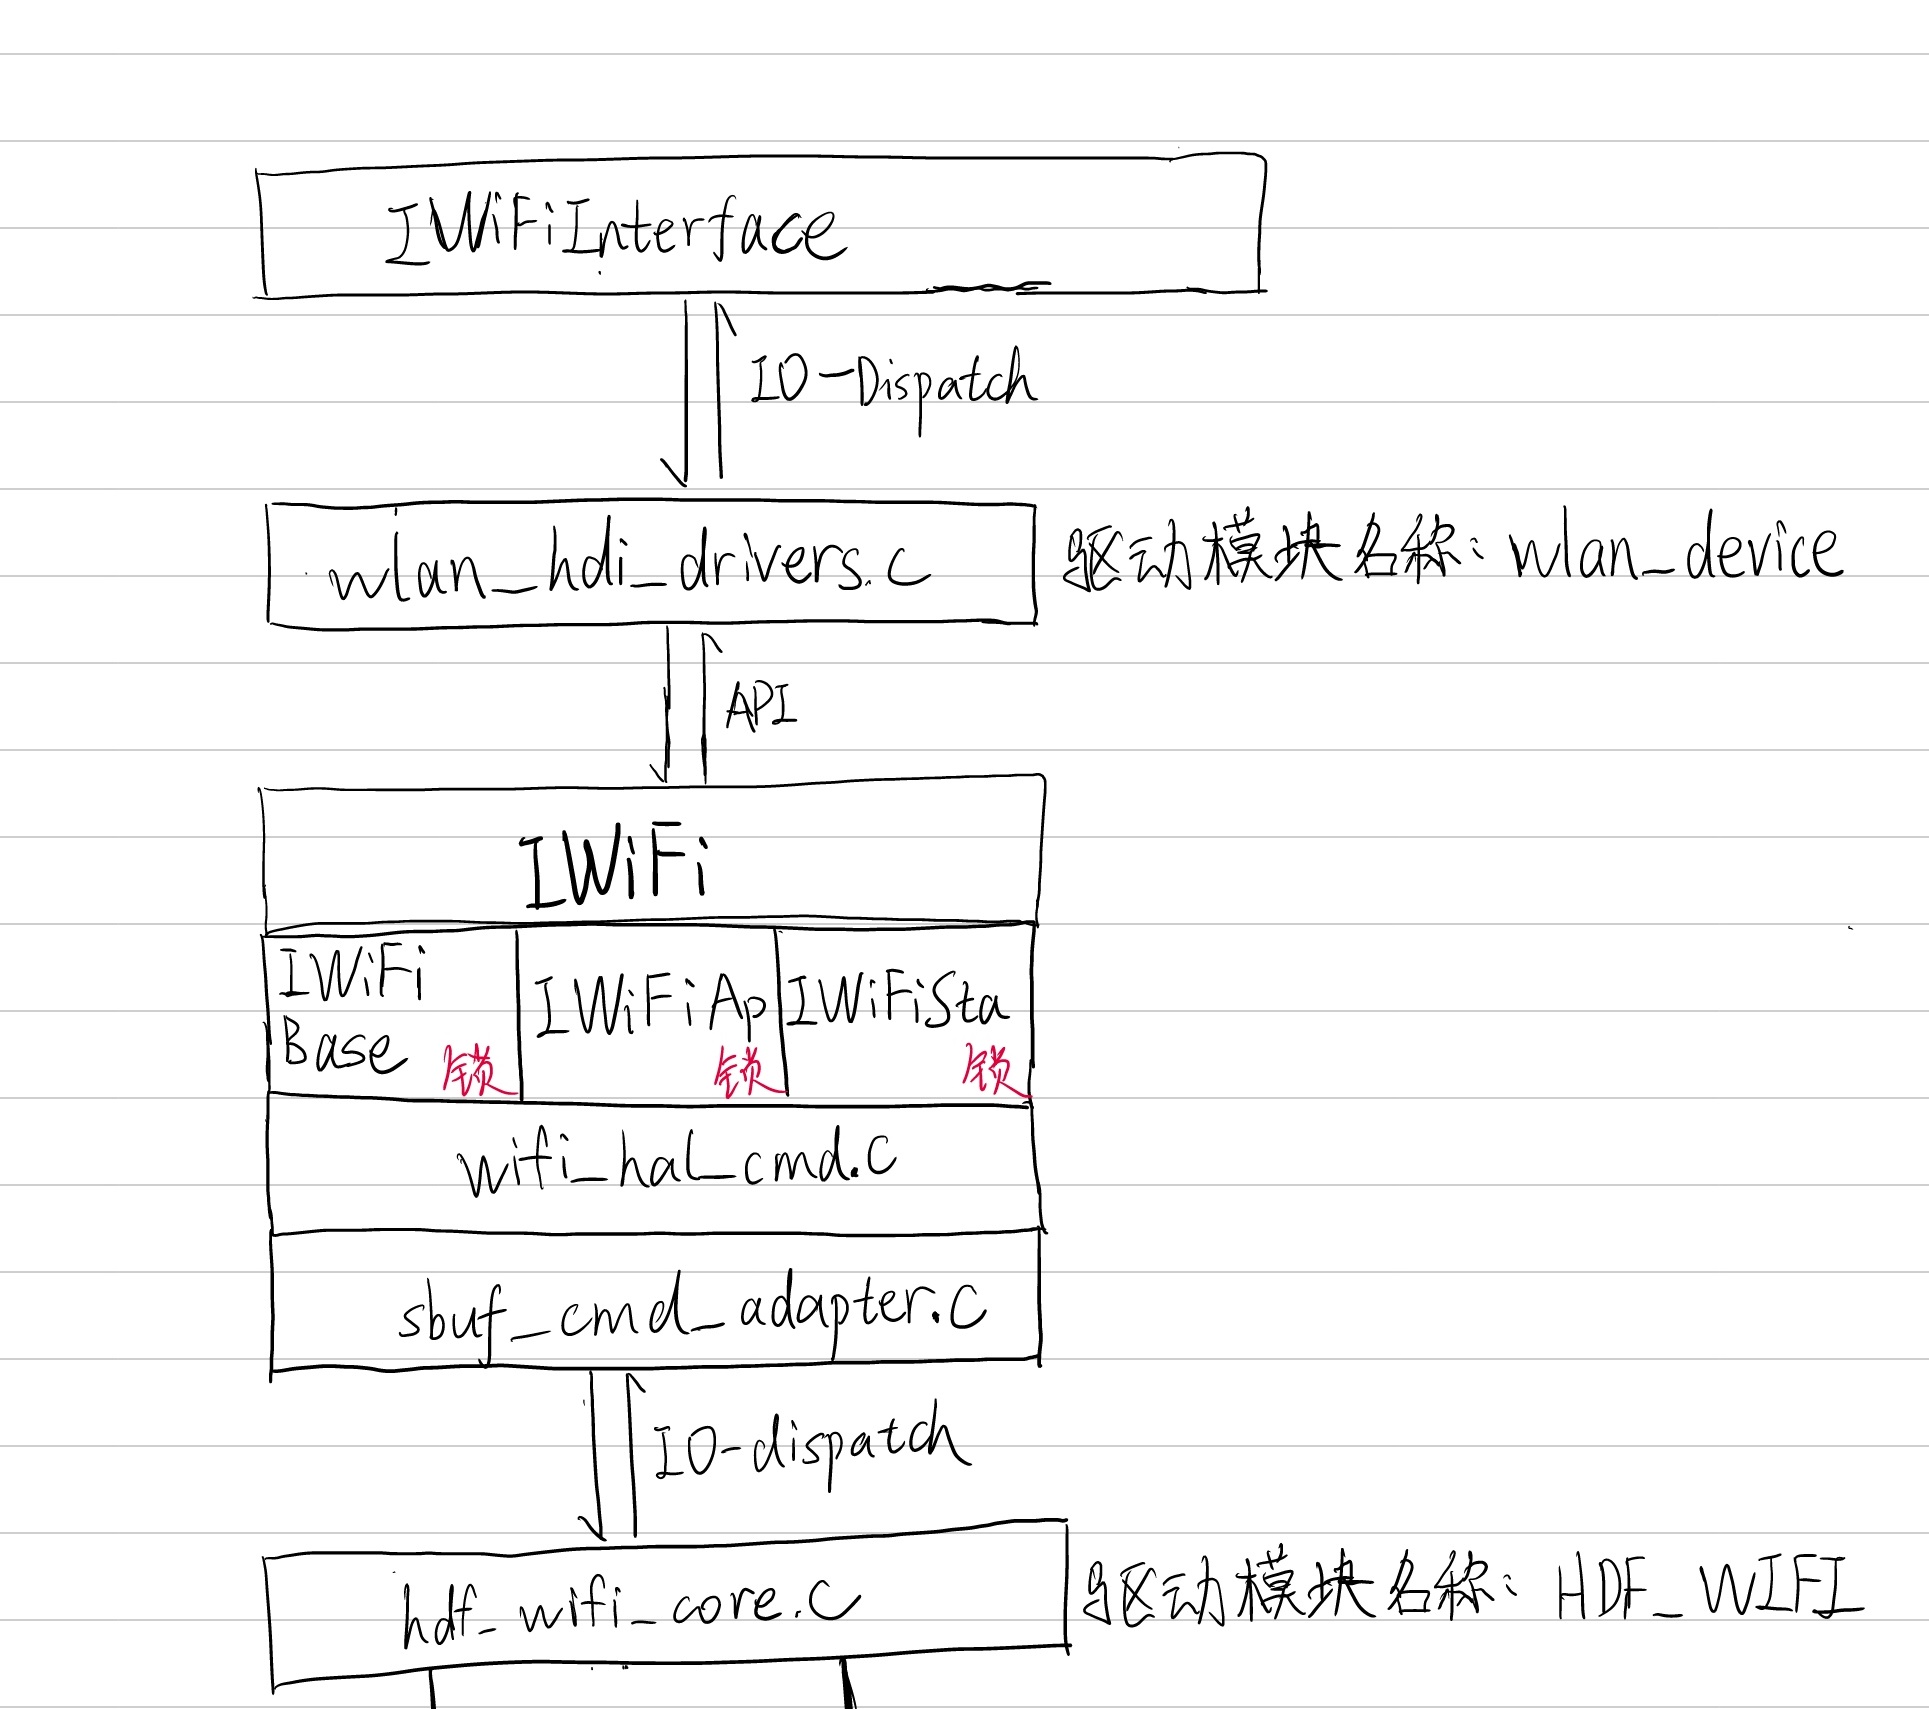 IWiFiInterface
IO-Dispatch
wlan_hdi_drivers.c
驱动模块名称: wlan_device
API
IWiFi
IWiFi
Base
锁
IWiFiAp
锁
IWiFiSta
锁
wifi_hal_cmd.c
sbuf_cmd_adapter.c
IO-dispatch
hdf_wifi_core.c
驱动模块名称: HDF_WIFI